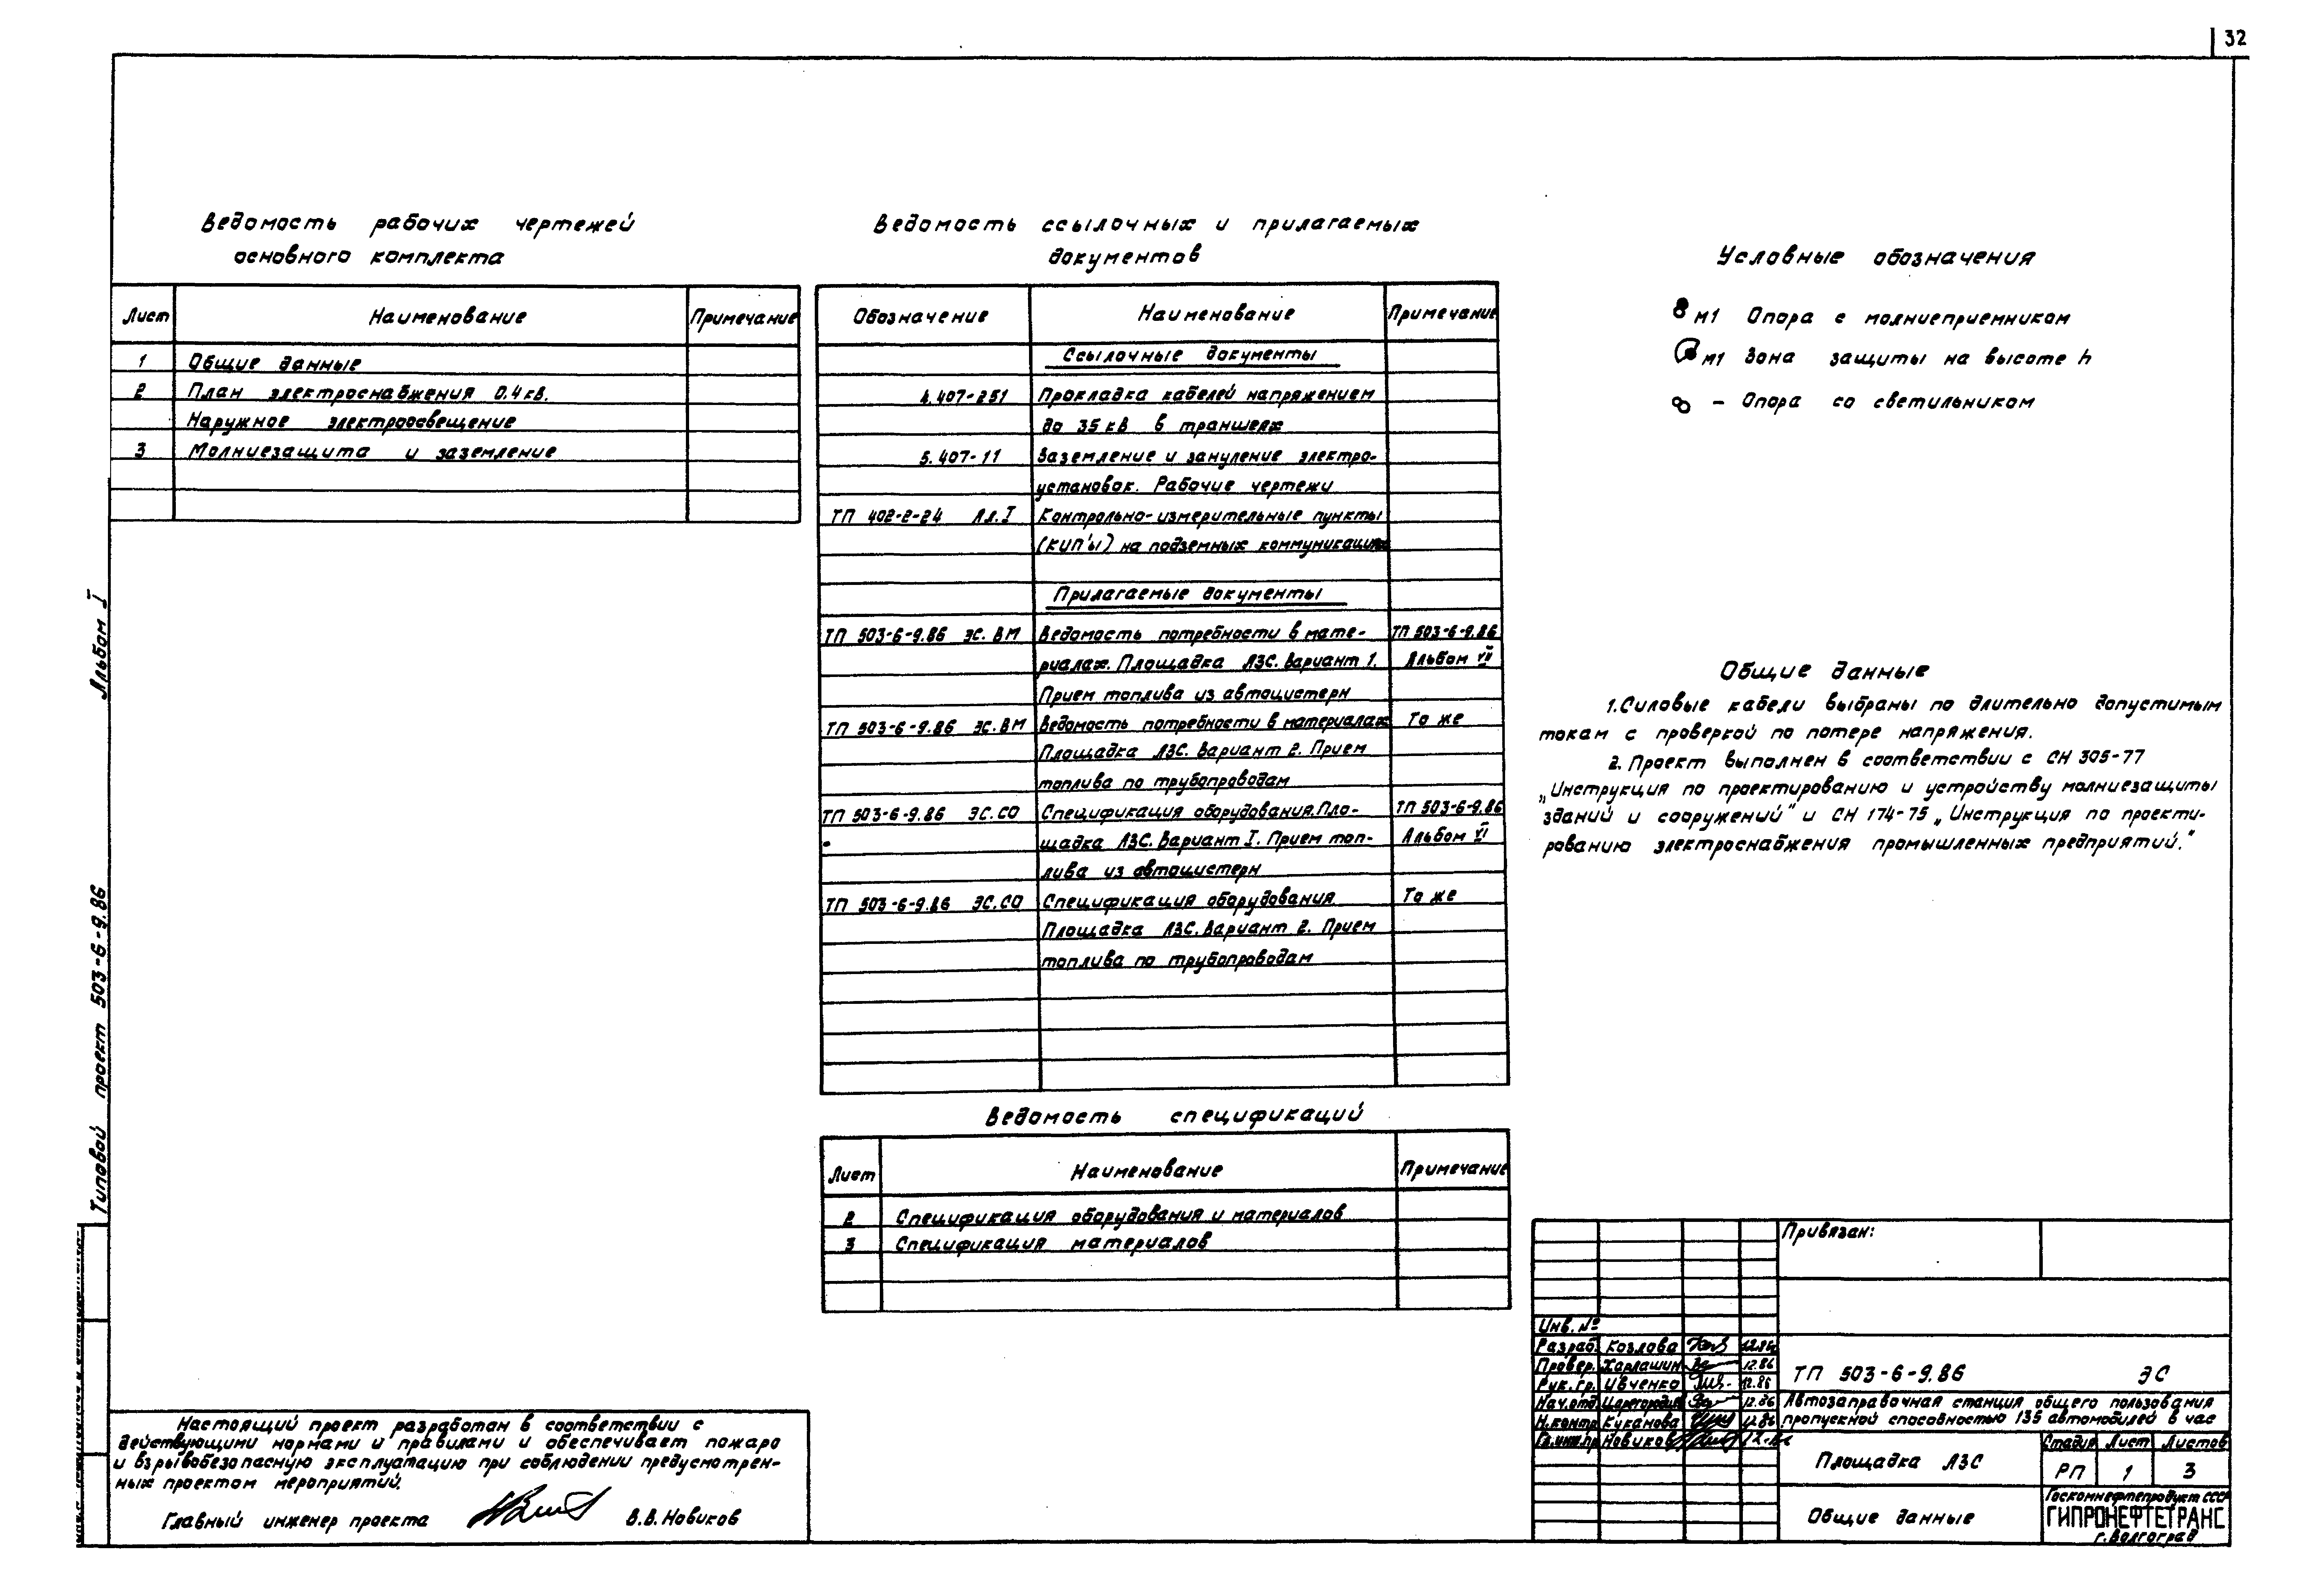 32
Ведомость рабочих чертежей
основного комплекта
Лист Наименование Примечание
1 Общие данные
2 План электроснабжения 0.4кв.
Наружное электроосвещение
3 Молниезащита и заземление
Ведомость ссылочных и прилагаемых
документов
Обозначение Наименование Примечание
Ссылочные документы
4.407-251 Прокладка кабелей напряжением
до 35 кВ в траншеях
5.407-11 Заземление и зануление электро-
установок. Рабочие чертежи
ТП 402-2-24 Ал.I Контрольно-измерительные пункты
(КИП'ы) на подземных коммуникациях
Прилагаемые документы
ТП 503-6-9.86 ЭС.ВМ Ведомость потребности в мате- ТП 503-6-9.86
риалах. Площадка АЗС. Вариант 1. Альбом VII
Прием топлива из автоцистерн
ТП 503-6-9.86 ЭС.ВМ Ведомость потребности в материалах То же
Площадка АЗС. Вариант 2. Прием
топлива по трубопроводам
ТП 503-6-9.86 ЭС.СО Спецификация оборудования.Пло- ТП 503-6-9.86
щадка АЗС. Вариант I. Прием топ- Альбом VI
лива из автоцистерн
ТП 503-6-9.86 ЭС.СО Спецификация оборудования То же
Площадка АЗС. Вариант 2. Прием
топлива по трубопроводам
Ведомость спецификаций
Лист Наименование Примечание
2 Спецификация оборудования и материалов
3 Спецификация материалов
Условные обозначения
М1 Опора с молниеприемником
М1 Зона защиты на высоте h
– Опора со светильником
Общие данные
1.Силовые кабели выбраны по длительно допустимым
токам с проверкой по потере напряжения.
2. Проект выполнен в соответствии с СН 305-77
„Инструкция по проектированию и устройству молниезащиты
зданий и сооружений" и СН 174-75 „Инструкция по проекти-
рованию электроснабжения промышленных предприятий."
Альбом I
Типовой проект 503-6-9.86
Настоящий проект разработан в соответствии с
действующими нормами и правилами и обеспечивает пожаро
и взрывобезопасную эксплуатацию при соблюдении предусмотрен-
ных проектом мероприятий.
Главный инженер проекта В.В.Новиков
Привязан:
Инв. №
Разраб. Козлова 12.86
Провер. Харлашин 12.86
Рук. гр. Ивченко 12.86
Нач.отд Царегородцев 12.86
Н.контр Куканова 12.86
Гл.инж.пр Новиков 12.86
ТП 503-6-9.86 ЭС
Автозаправочная станция общего пользования
пропускной способностью 135 автомобилей в час
Площадка АЗС
Стадия Лист Листов
РП 1 3
Общие данные
Госкомнефтепродукт СССР
ГИПРОНЕФТЕТРАНС
г. Волгоград